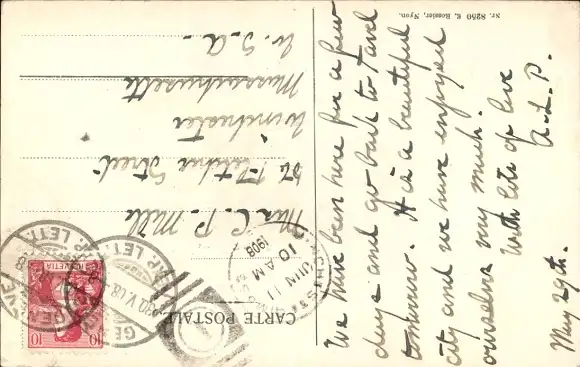 CARTE POSTALE
Nr. 8250 E. Rossier, Nyon.
We have been here for a few
days and go back to
tomorrow. It is a beautiful
city and we have enjoyed
ourselves very much.
With lots of love
A. L. P.
May 29th.
Mrs. C. P. Mills
56 Fletcher Street
Winchester
Massachusetts
U. S. A.
HELVETIA
10 10
GENÈVE
EXP. LETT.
30 V. 08
JUN 11
10 AM
1908